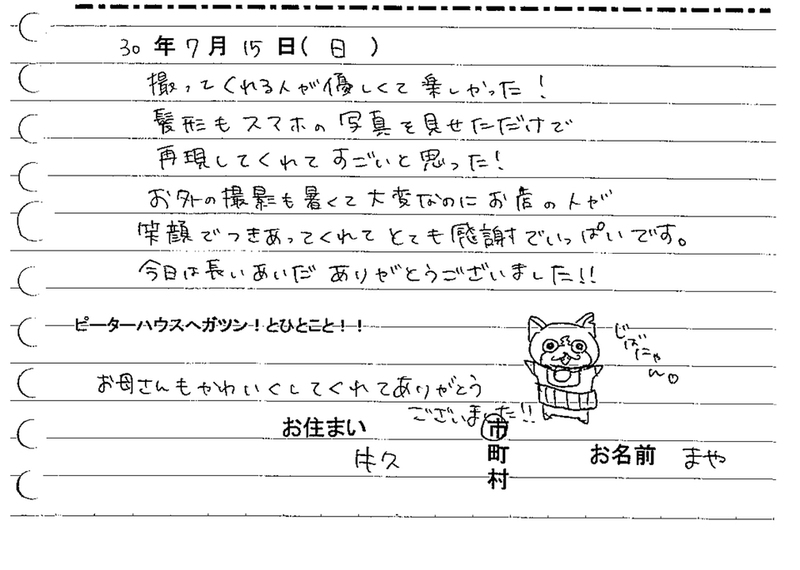 30年7月15日(日)
撮ってくれる人が優しくて楽しかった!
髪形もスマホの写真を見せただけで
再現してくれてすごいと思った!
お外の撮影も暑くて大変なのにお店の人が
笑顔でつきあってくれてとても感謝でいっぱいです。
今日は長いあいだありがとうございました!!
ピーターハウスへガツン!とひとこと!!
じばにゃん。
お母さんもかわいくしてくれてありがとう
ございました!!
お住まい 牛久 市町村 お名前 まや